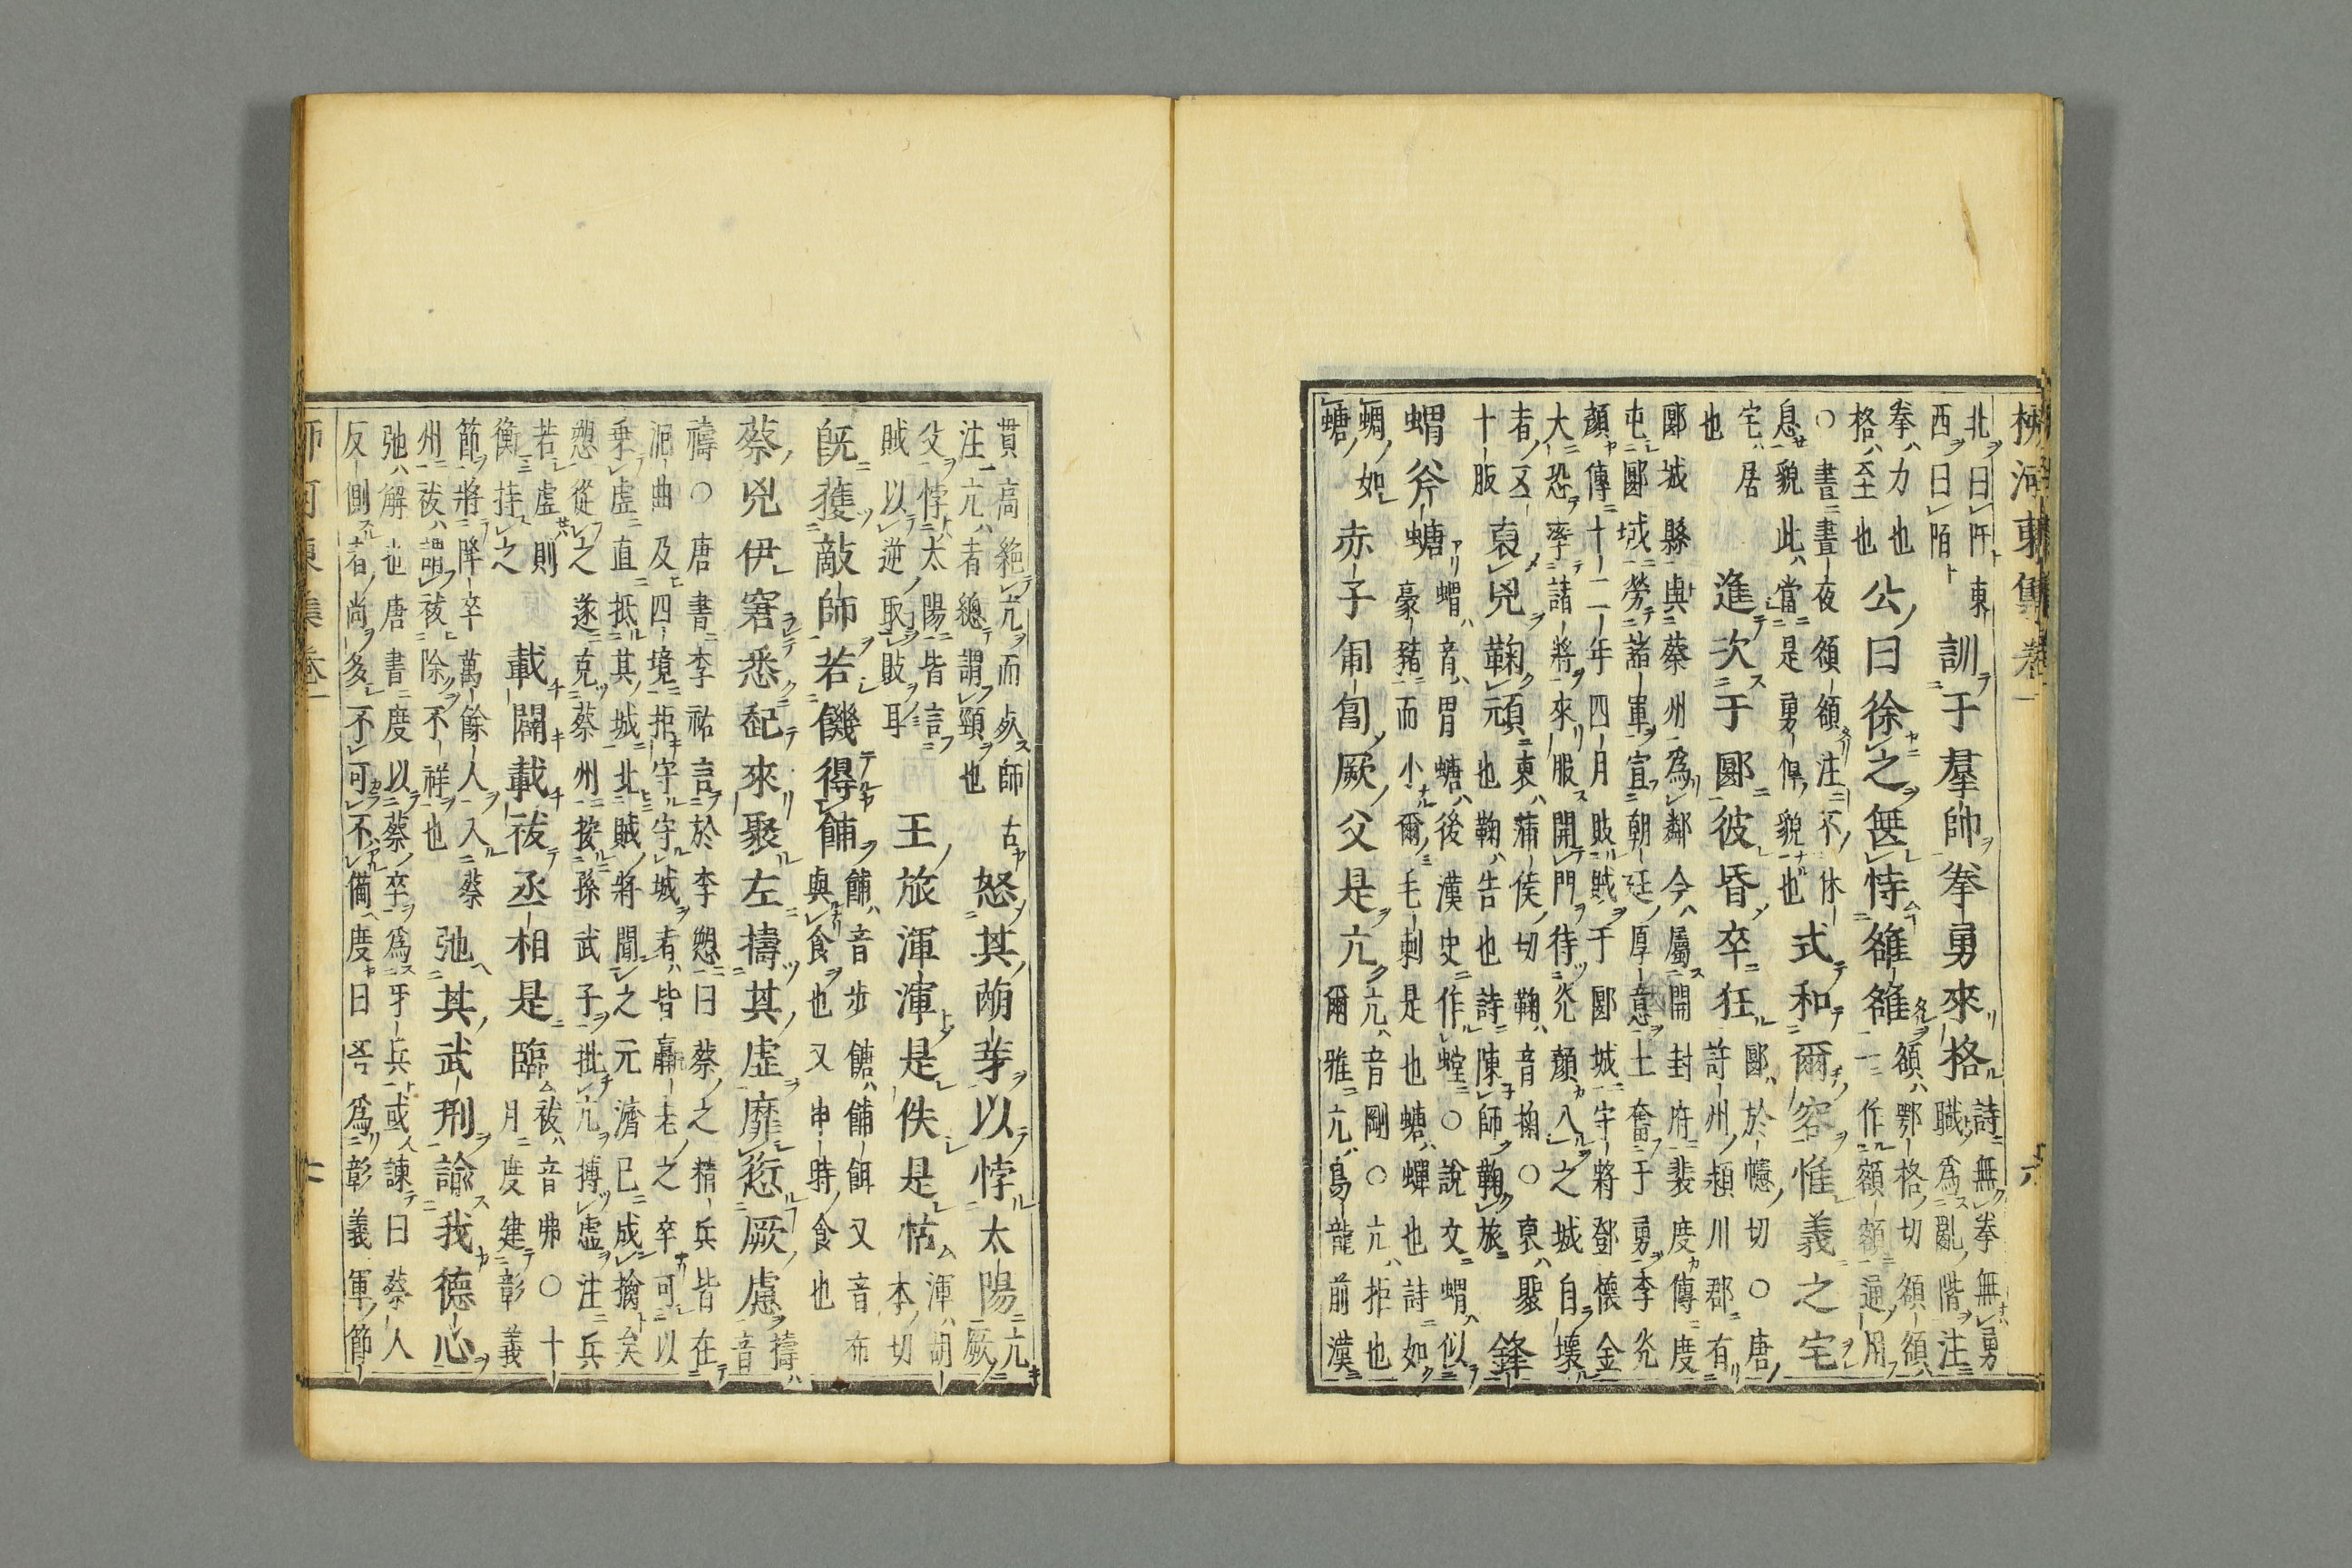 柳河東集卷一 六
北曰阡東
西曰陌
訓于羣帥拳勇來格
詩無拳無勇
職為亂階注
拳力也
格至也
公曰徐之無恃頟頟
頟鄂格切頟頟
一作額額通用
○書晝夜頟頟注不休
息貌此當是勇悍貌也
式和爾容惟義之宅
宅居
也
進次于郾彼昏卒狂
郾於幰切○唐
許州潁川郡有
郾城縣與蔡州為鄰今屬開封府裴度傳度
屯郾城勞諸軍宣朝廷厚意士奮于勇李光
顏傳十二年四月敗賊于郾城守將鄧懷金
大恐率諸將來服開門待光顏入之城自壞
者五
十版
裒兇鞠頑
裒蒲侯切鞠音掬○裒聚
也鞠告也詩陳師鞠旅
鋒
蝟斧螗
蝟音胃螗後漢史作螳○說文蝟似
豪豬而小爾毛刺是也螗蟬也詩如
蜩如
螗
赤子匍匐厥父是亢
亢音剛○亢拒也
爾雅亢鳥龍前漢
貫高絕亢而死師古
注亢者總謂頸也
怒其萌芽以悖太陽
亢
厥
父悖太陽皆言
賊以逆取敗耳
王旅渾渾是佚是怙
渾胡
本切
既獲敵師若饑得餔
餔音步餹餔餌又音布
與食也又申時食也
蔡兇伊窘悉起來聚左擣其虛靡愆厥慮
擣
音
禱○唐書李祐言於李愬曰蔡之精兵皆在
洄曲及四境拒守守城者皆羸老之卒可以
乘虛直抵其城北賊將聞之元濟已成擒矣
愬從之遂克蔡州按孫武子批亢搏虛注兵
若虛則
衡持之
載闢載祓丞相是臨
祓音弗○十
月度建彰義
節將降卒萬餘人入蔡
州祓謂祓除不祥也
弛其武刑諭我德心
弛解也唐書度以蔡卒為牙兵或諫曰蔡人
反側者尚多不可不備度曰吾為彰義軍節